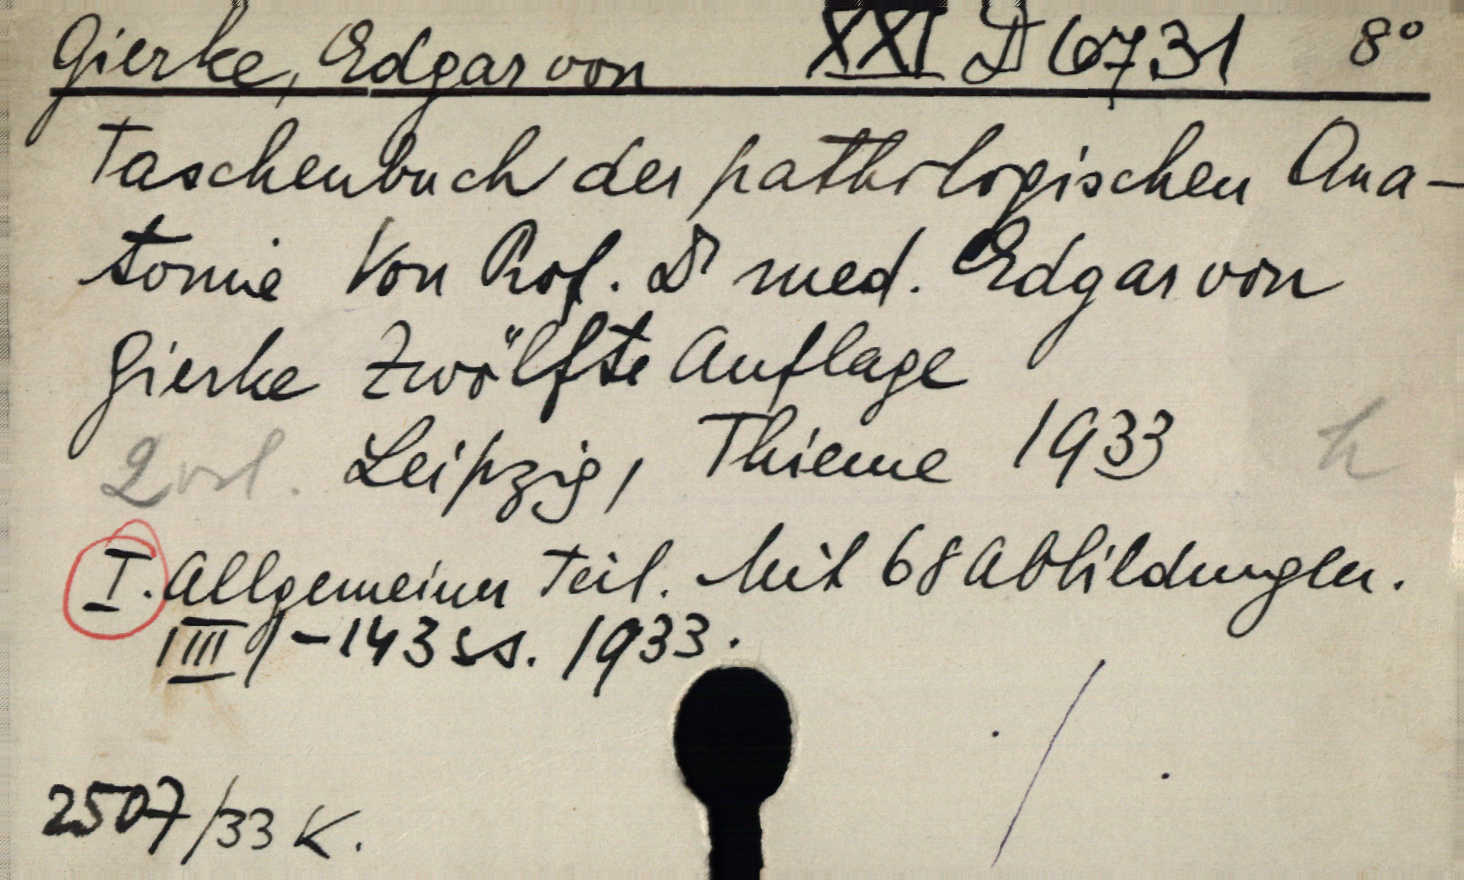 Gierke, Edgar von XXI D 6731 8°
Taschenbuch der pathologischen Ana-
tomie Von Prof. Dr med. Edgar von
Gierke Zwölfte Auflage
2 vol. Leipzig, Thieme 1933 h
I. Allgemeiner Teil. Mit 68 Abbildungen.
1933.
2507/33 K.